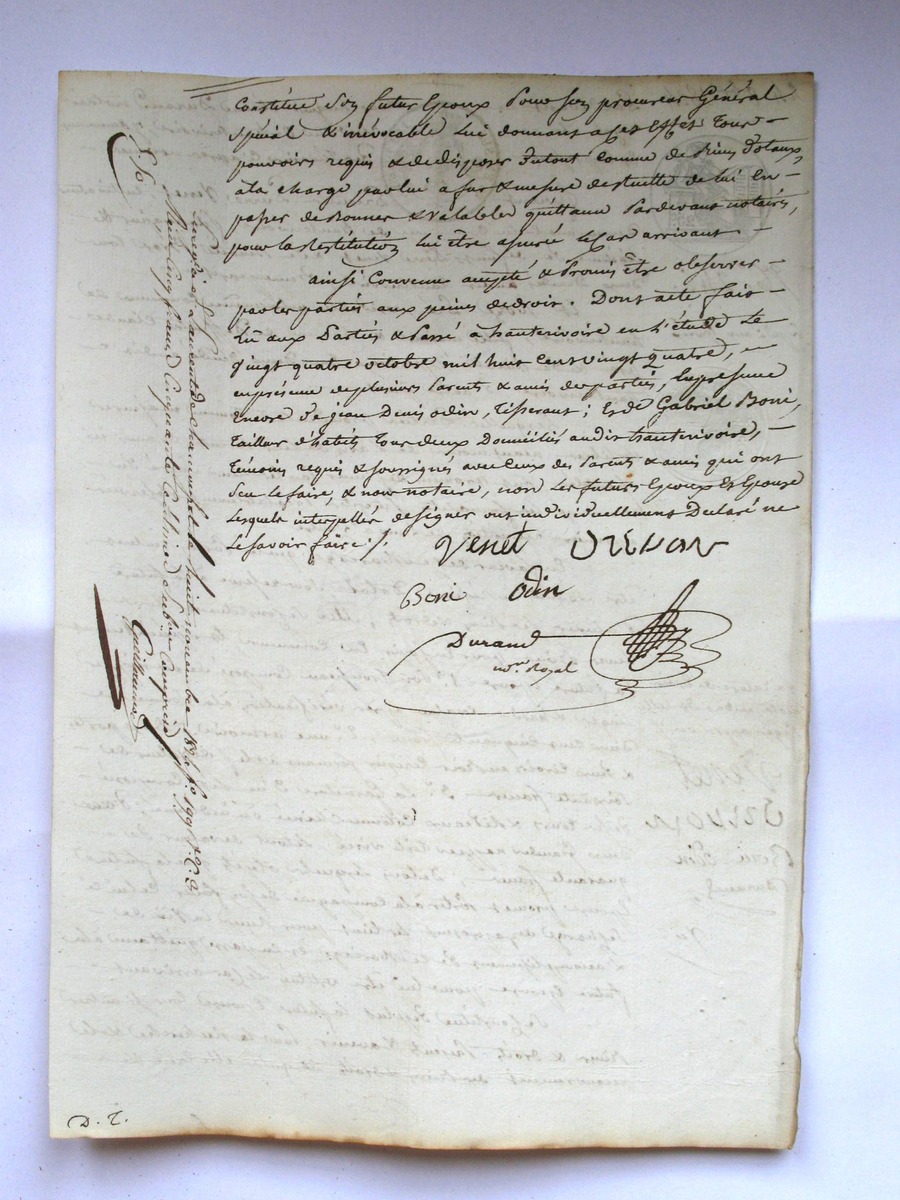 Constitue son futur Epoux pour son procureur Général
Spécial & irrévocable lui donnant a cet effet tous
pouvoirs requis & de disposer du tout comme de biens dotaux,
à la charge par lui a fur & mesure de lui en
passer de bonnes & valables quittances pardevant notaires,
pour la restitution lui être assuré le cas arrivant
ainsi convenu accepté & promis être observer
par les parties aux peines de droit. Dont acte fait
lû aux Parties & Passé à hauterivoire en l'étude Le
Vingt quatre octobre mil huit cent vingt quatre,
en présence de plusieurs Parents & amis des parties, En présence
Encore de jean Denis odin, Tisserant; Et de Gabriel Boni,
Tailleur d'habits tous deux Domiciliés audit hauterivoire,
Témoins requis & soussignés avec ceux des Parents & amis qui ont
Seu le faire, & nous notaire, non les futurs Epoux Et Epouse
Lesquels interpellés de signer ont individuellement Declaré ne
Le savoir faire ./.
Venet
Boni odin
Durand
not. Royal
Enregistré à St Laurent de chamousset le huit novembre 1824 fo. 199
Reçu cinq francs cinquante centimes subon. compris
Guillermard
D. T.